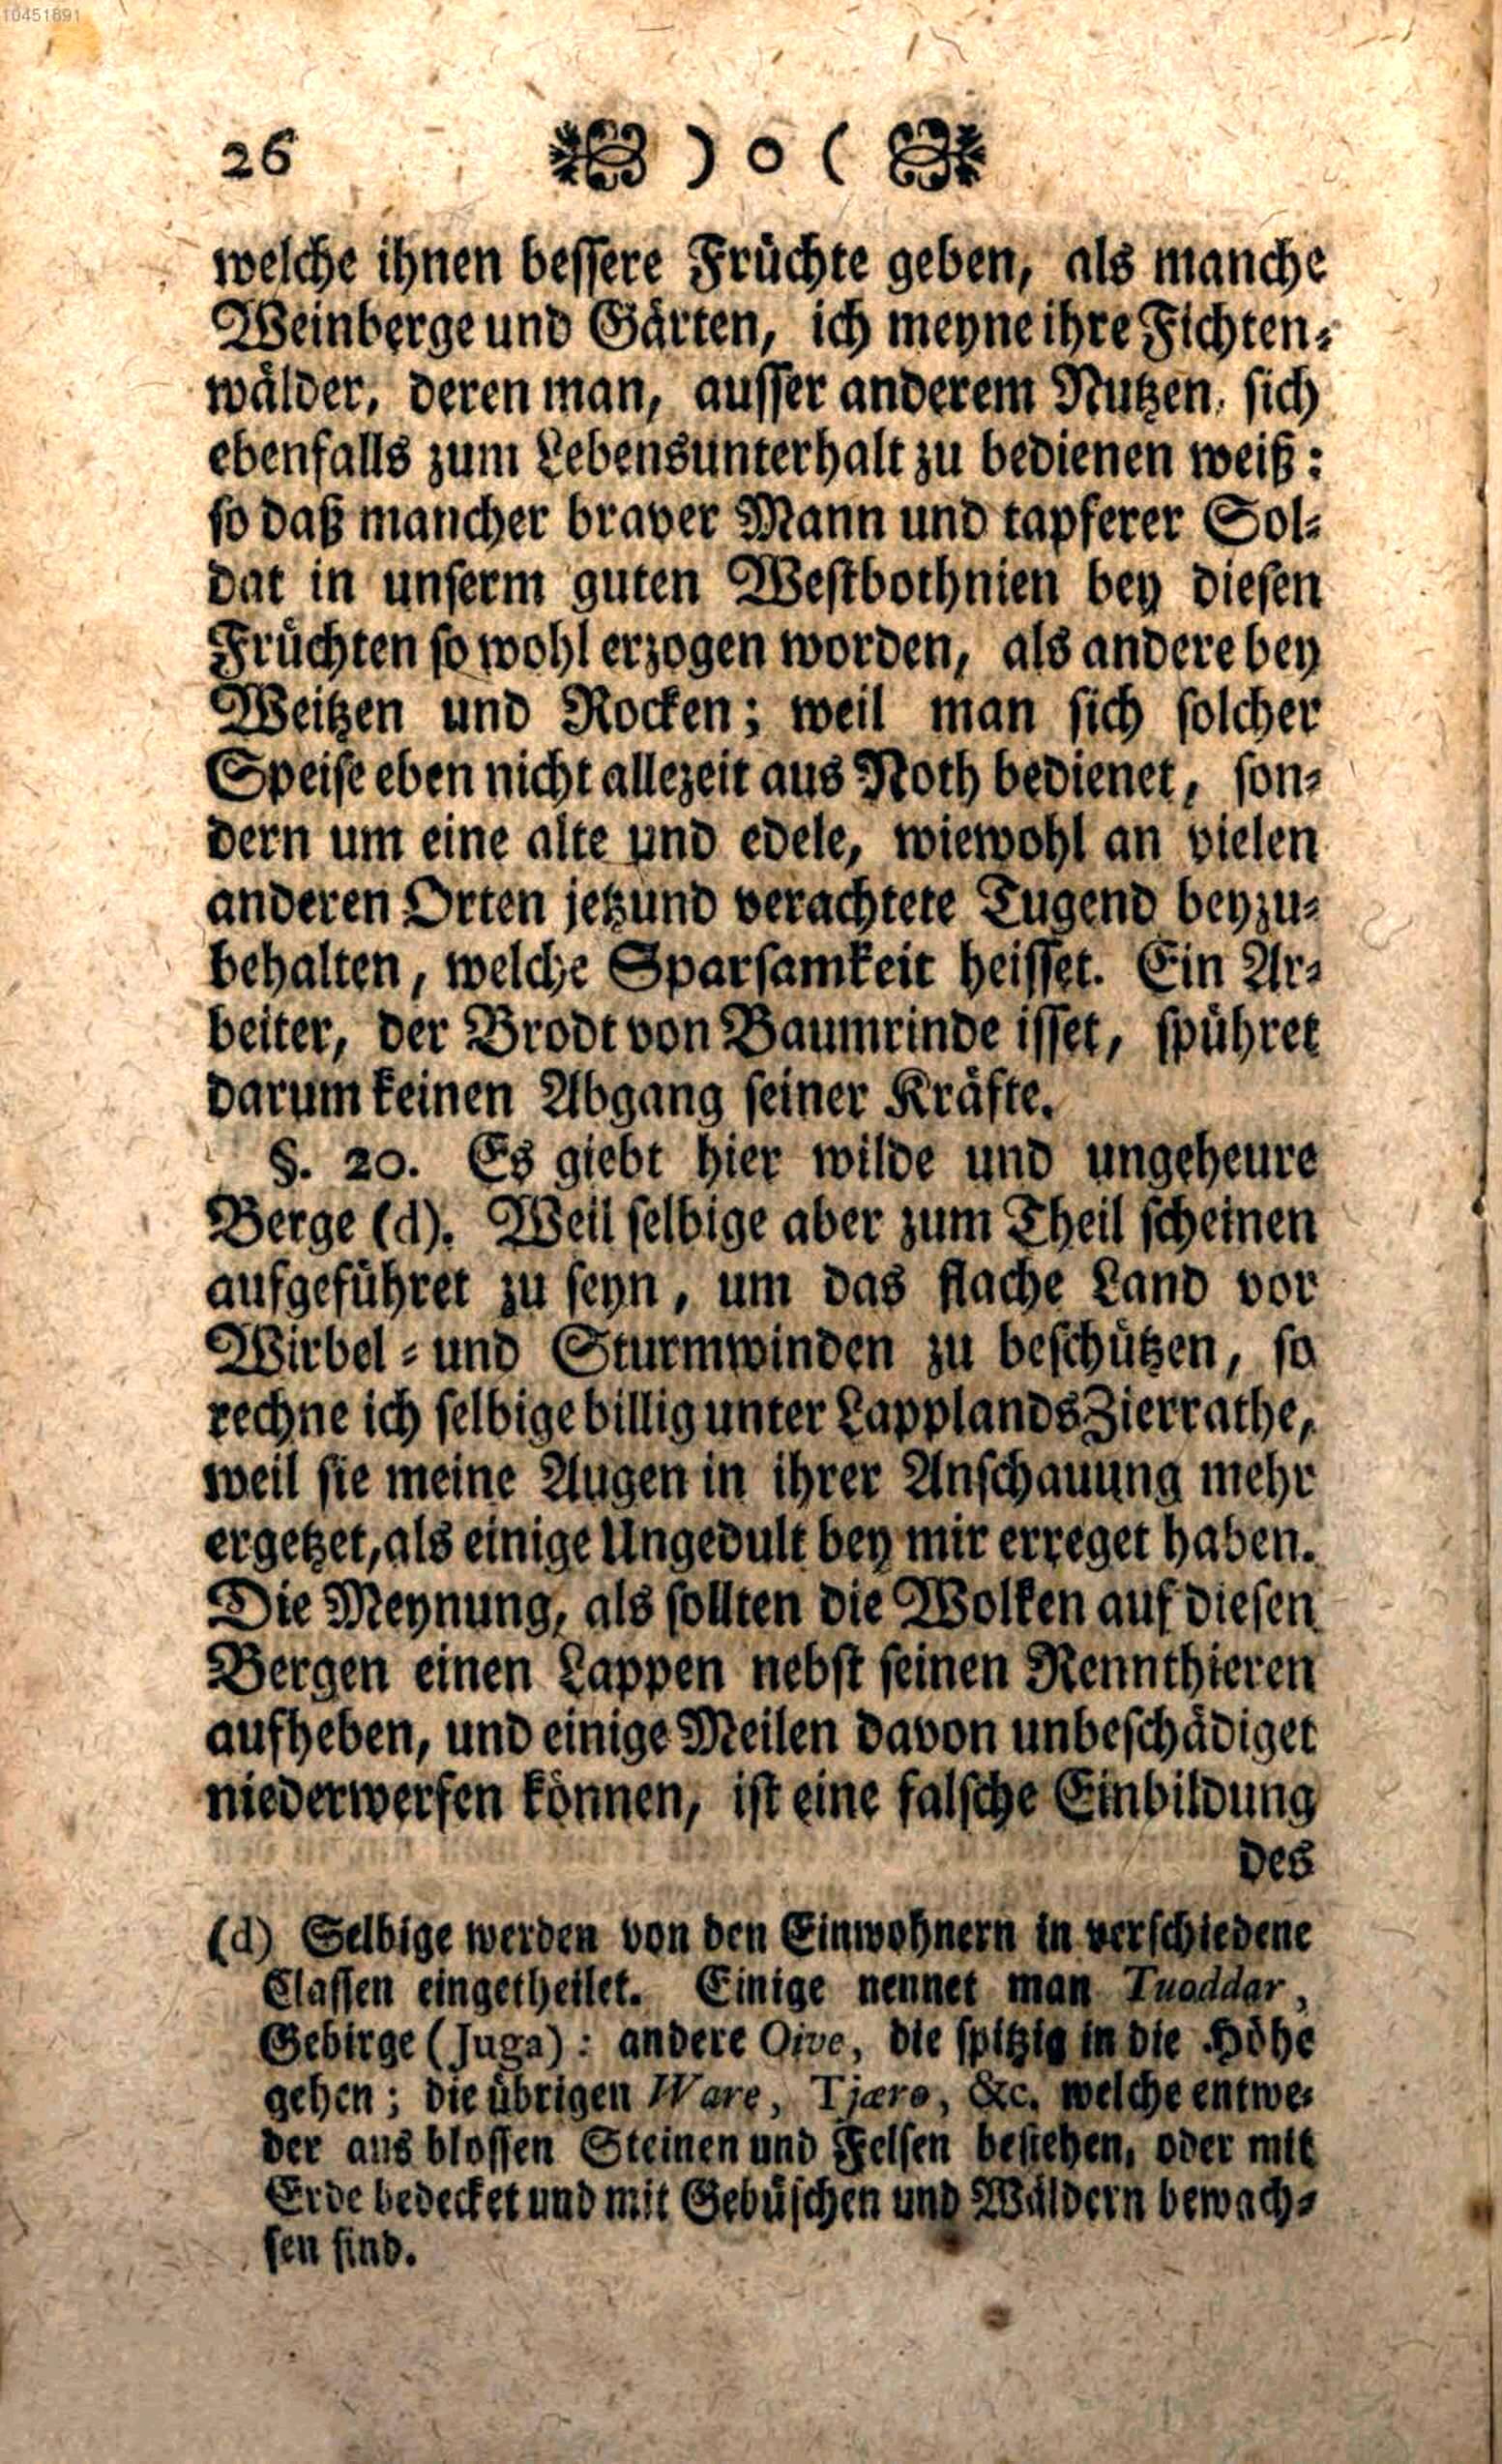 10451891
26 ) o (
welche ihnen bessere Früchte geben, als manche
Weinberge und Gärten, ich meyne ihre Fichten-
wälder, deren man, ausser anderem Nutzen, sich
ebenfalls zum Lebensunterhalt zu bedienen weiß:
so daß mancher braver Mann und tapferer Sol-
dat in unserm guten Westbothnien bey diesen
Früchten so wohl erzogen worden, als andere bey
Weitzen und Rocken; weil man sich solcher
Speise eben nicht allezeit aus Noth bedienet, son-
dern um eine alte und edele, wiewohl an vielen
anderen Orten jetzund verachtete Tugend beyzu-
behalten, welche Sparsamkeit heisset. Ein Ar-
beiter, der Brodt von Baumrinde isset, spühret
darum keinen Abgang seiner Kräfte.
§. 20. Es giebt hier wilde und ungeheure
Berge (d). Weil selbige aber zum Theil scheinen
aufgeführet zu seyn, um das flache Land vor
Wirbel- und Sturmwinden zu beschützen, so
rechne ich selbige billig unter Lapplands Zierrathe,
weil sie meine Augen in ihrer Anschauung mehr
ergetzet, als einige Ungedult bey mir erreget haben.
Die Meynung, als sollten die Wolken auf diesen
Bergen einen Lappen nebst seinen Rennthieren
aufheben, und einige Meilen davon unbeschädiget
niederwerfen können, ist eine falsche Einbildung
des
(d) Selbige werden von den Einwohnern in verschiedene
Classen eingetheilet. Einige nennet man Tuoddar,
Gebirge (Juga): andere Oive, die spitzig in die Höhe
gehen; die übrigen Ware, Tjæro, &c. welche entwe-
der aus blossen Steinen und Felsen bestehen, oder mit
Erde bedecket und mit Gebüschen und Wäldern bewach-
sen sind.